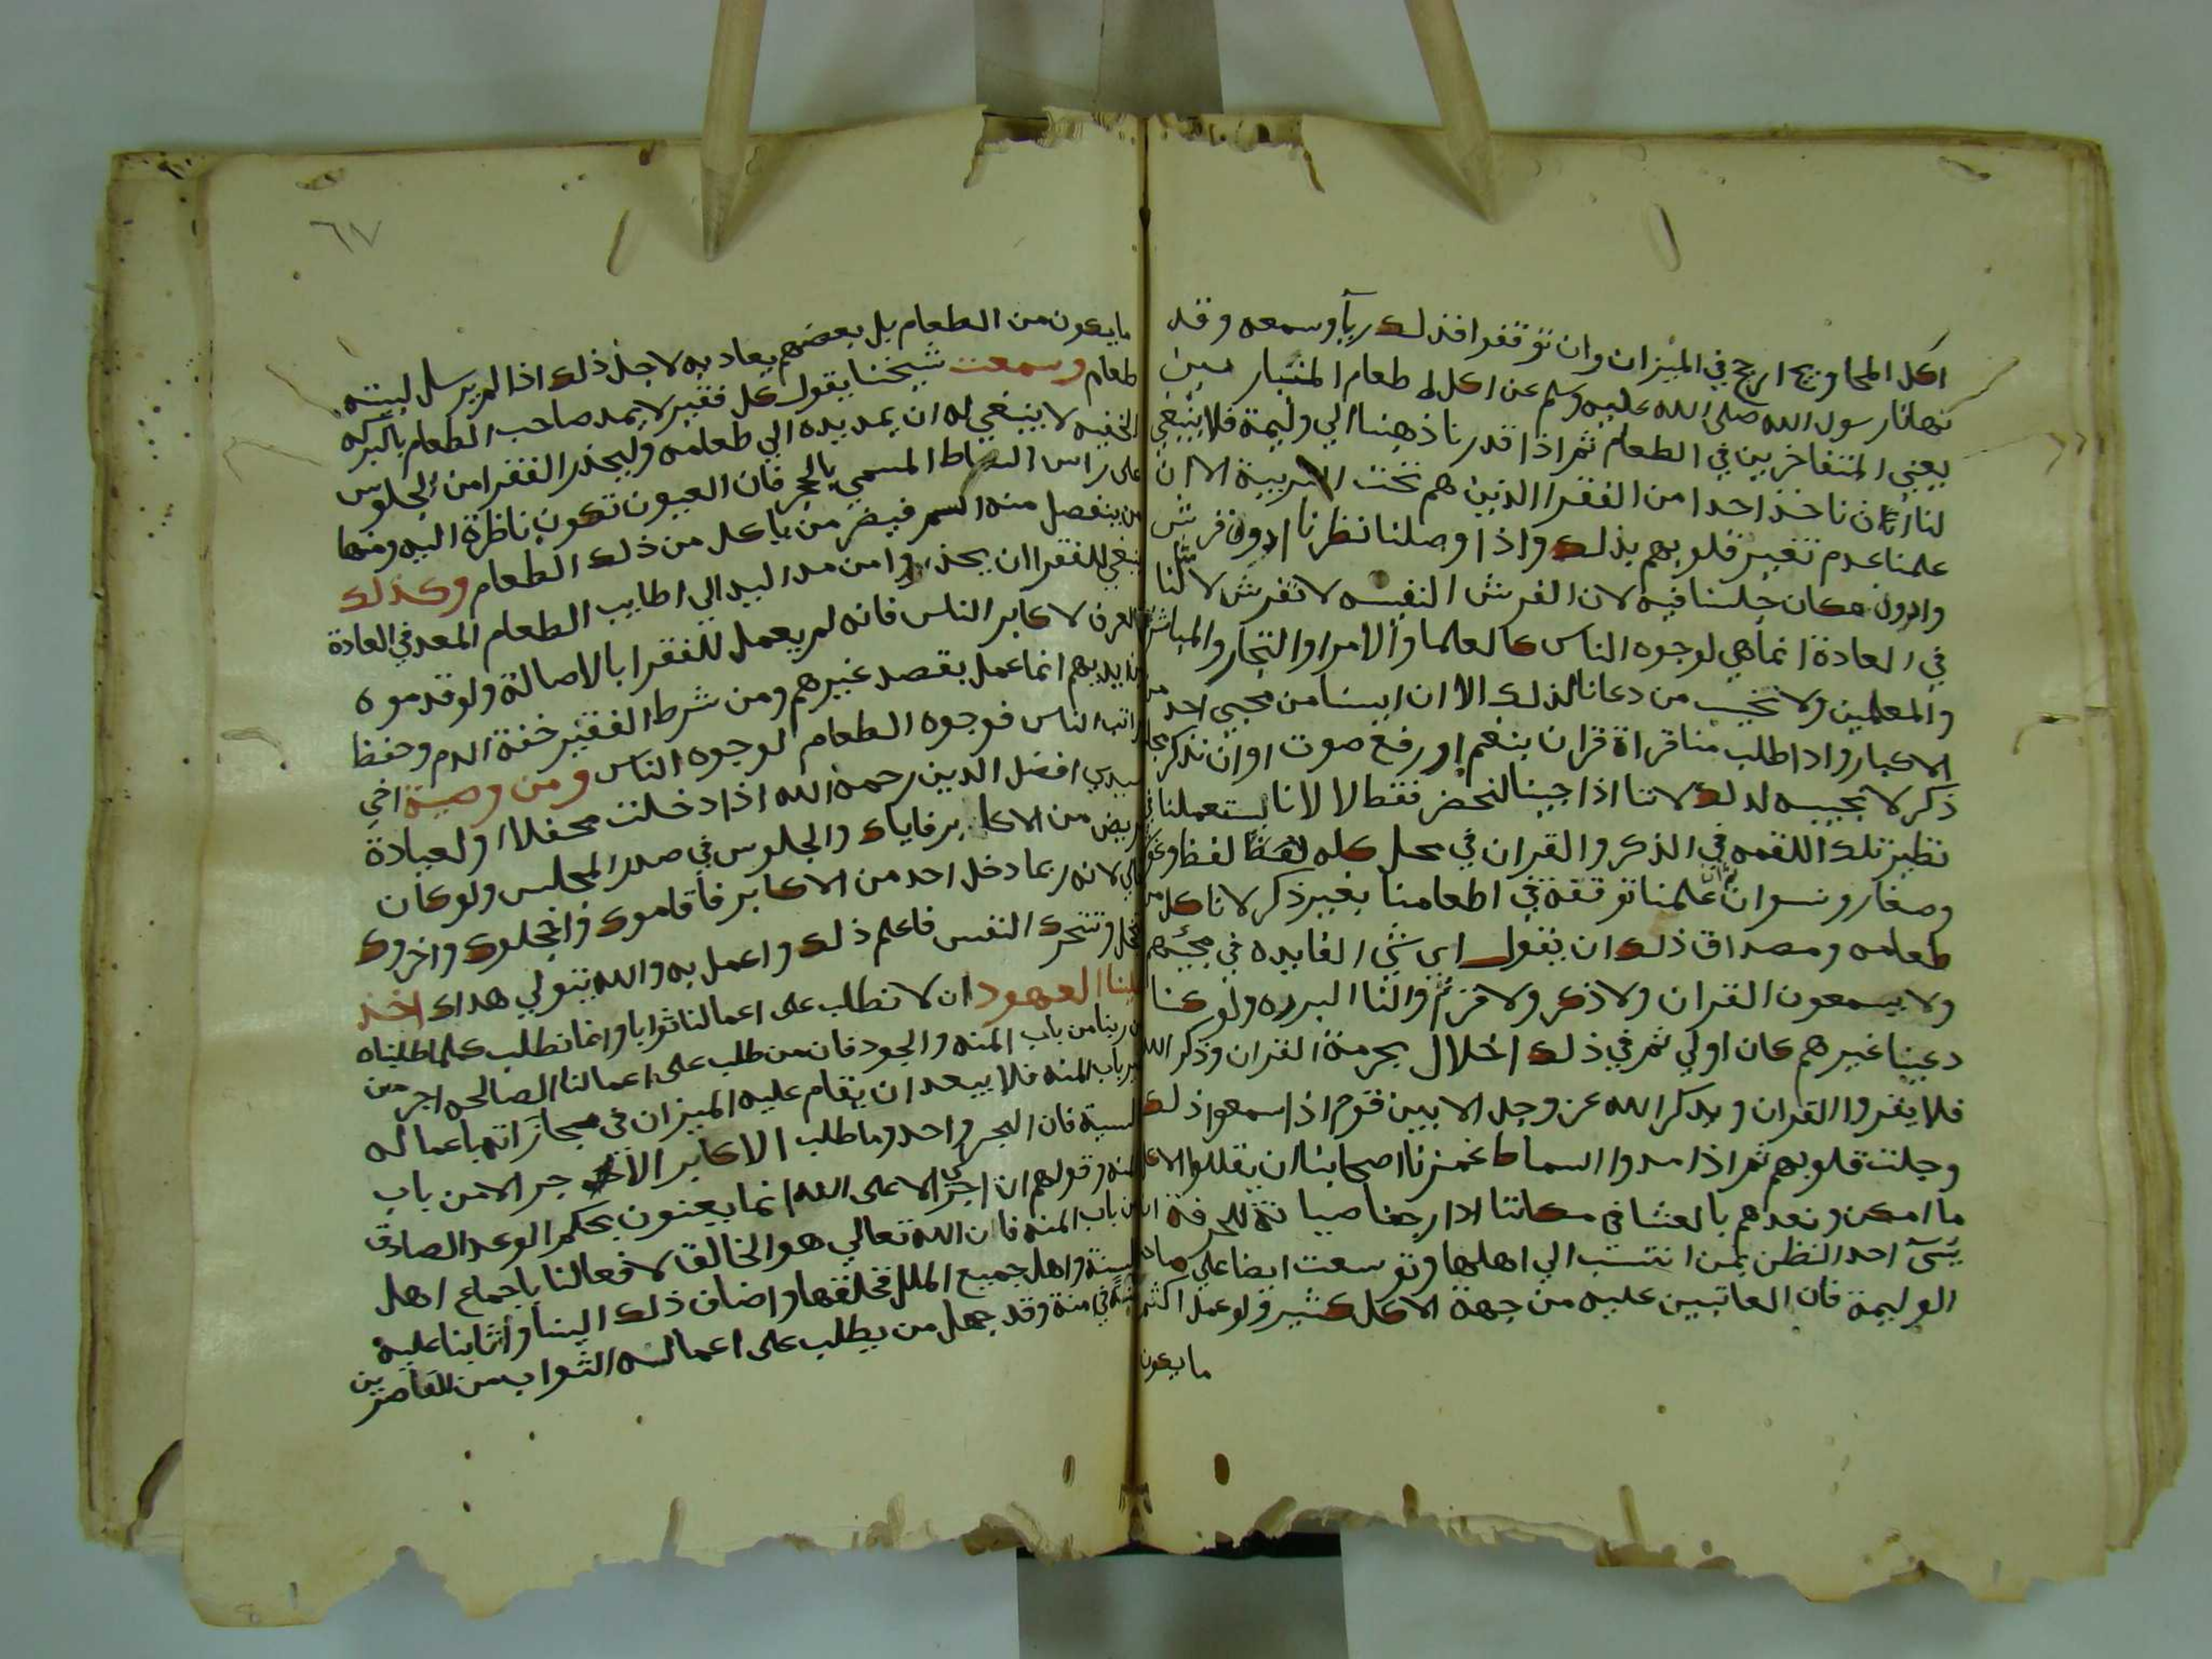 اكل المحاويج ارجح في الميزان وان توقفوا فذلك رياً وسمعه وقد
نهانا رسول الله صلى الله عليه وسلم عن اكل طعام المتباريين
يعني المتفاخرين في الطعام ثم اذا قدرنا ذهبنا الي وليمة فلا ينبغي
لنا ان ناخذ احدا من الفقرا الذين هم تحت التربية الا ان
علمنا عدم تغير قلوبهم بذلك واذا وصلنا نظرنا ادون فرش
وادون مكان جلسنا فيه لان الفرش النفيسه لا تفرش لامثالنا
في العادة انما هي لوجوه الناس كالعلما والامرا والتجار والمباشر
والمعلمين ولا نجيب من دعانا لذلك الا ان ايسنا من مجيي احد من
الاكابر واذا طلب منا قراة قران بنغم او رفع صوت او ان نذكر مجلس
ذكر لا نجيبه لذلك لاننا اذا جينا لنحضر فقط لا لانا يستعملنا في
نظير تلك اللقمه في الذكر والقران في محل كله لغط لفظ وغو
وصغار ونسوان ثم ان علمنا توقفه في اطعامنا بغير ذكر لا ناكل من
طعامه ومصداق ذلك ان يقول اي شي الفايده في مجيهم
ولا يسمعون القران ولا ذكر ولا قرتم والنا البرده ولو كنا
دعينا غيرهم كان اولي ثم في ذلك اخلال بحرمة القران وذكر الله
فلا يقروا القران ويذكر الله عز وجل الا بين قوم اذا سمعوا ذلك
وجلت قلوبهم ثم اذا مدوا السماط غمزنا اصحابنا ان يقللوا الاكل
ما امكن ونعدهم بالعشا في مكاننا اذا رجعنا صيانة للحرفة ان
يسئ احد الظن بمن انتسب الي اهلها وتوسعت ايضا علي صاحب
الوليمة فان العاتبين عليه من جهة الاكل كثير ولو عمل اكثر
ما يعون
٦٧
ما يعون من الطعام بل بعضهم يعاديه لاجل ذلك اذا لم يرسل لبيته
طعام وسمعت شيخنا يقول كل فقير لا يمد صاحب الطعام بالبركه
الخفيه لا ينبغي له ان يمد يده الي طعامه وليحذر الفقرا من الجلوس
على راس السماط المسمي بالحجر فان العيون تكون ناظرة اليه ومنها
من ينفصل منه السم فيضر من ياكل من ذلك الطعام وكذلك
ينبغي للفقرا ان يحذروا من مد اليد الى اطايب الطعام المعد في العادة
والعرف لاكابر الناس فانه لم يعمل للفقرا بالاصالة ولو قدموه
بين ايديهم انما عمل بقصد غيرهم ومن شرط الفقير خفة الدم وحفظ
مراتب الناس فوجوه الطعام لوجوه الناس ومن وصية اخي
سيدي افضل الدين رحمه الله اذا دخلت محفلا او لعيادة
مريض من الاكابر فاياك والجلوس في صدر المجلس ولو كان
خالي لانه ربما دخل احد من الاكابر فاقاموك واخجلوك واخروك
فتخجل وتتحرك النفس فاعلم ذلك واعمل به والله يتولي هداك اخذ
علينا العهود ان لا نطلب على اعمالنا ثوابا وانما نطلب كلما طلبناه
من ربنا من باب المنه والجود فان من طلب على اعمالنا الصالحه اجر من
غير باب المنه فلا يبعد ان يقام عليه الميزان في مجازاته باعماله
السية فان البحر واحد وما طلب الاكابر الاجر الا من باب
المنه وقولهم ان اجري الا على الله انما يعنون بحكم الوعد الصادق
من باب المنه فان الله تعالي هو الخالق لافعالنا باجماع اهل
السنة واهل جميع الملل فخلقها واضاف ذلك الينا واثابنا عليه
منة في منة وقد جهل من يطلب على اعماله الثواب من القاصرين